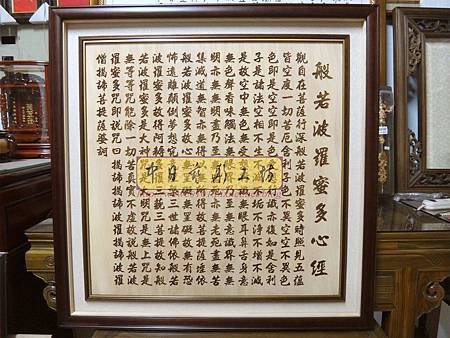 般若波羅蜜多心經
觀自在菩薩行深般若波羅蜜多時照見五蘊
皆空度一切苦厄舍利子色不異空空不異色
色即是空空即是色受想行識亦復如是舍利
子是諸法空相不生不滅不垢不淨不增不減
是故空中無色無受想行識無眼耳鼻舌身意
無色聲香味觸法無眼界乃至無意識界無無
明亦無無明盡乃至無老死亦無老死盡無苦
集滅道無智亦無得以無所得故菩提薩埵依
般若波羅蜜多故心無罣礙無罣礙故無有恐
怖遠離顛倒夢想究竟涅槃三世諸佛依般若
波羅蜜多故得阿耨多羅三藐三菩提故知般
若波羅蜜多是大神咒是大明咒是無上咒是
無等等咒能除一切苦真實不虛故說般若波
羅蜜多咒即說咒曰揭諦揭諦波羅揭諦波羅
僧揭諦菩提薩婆訶